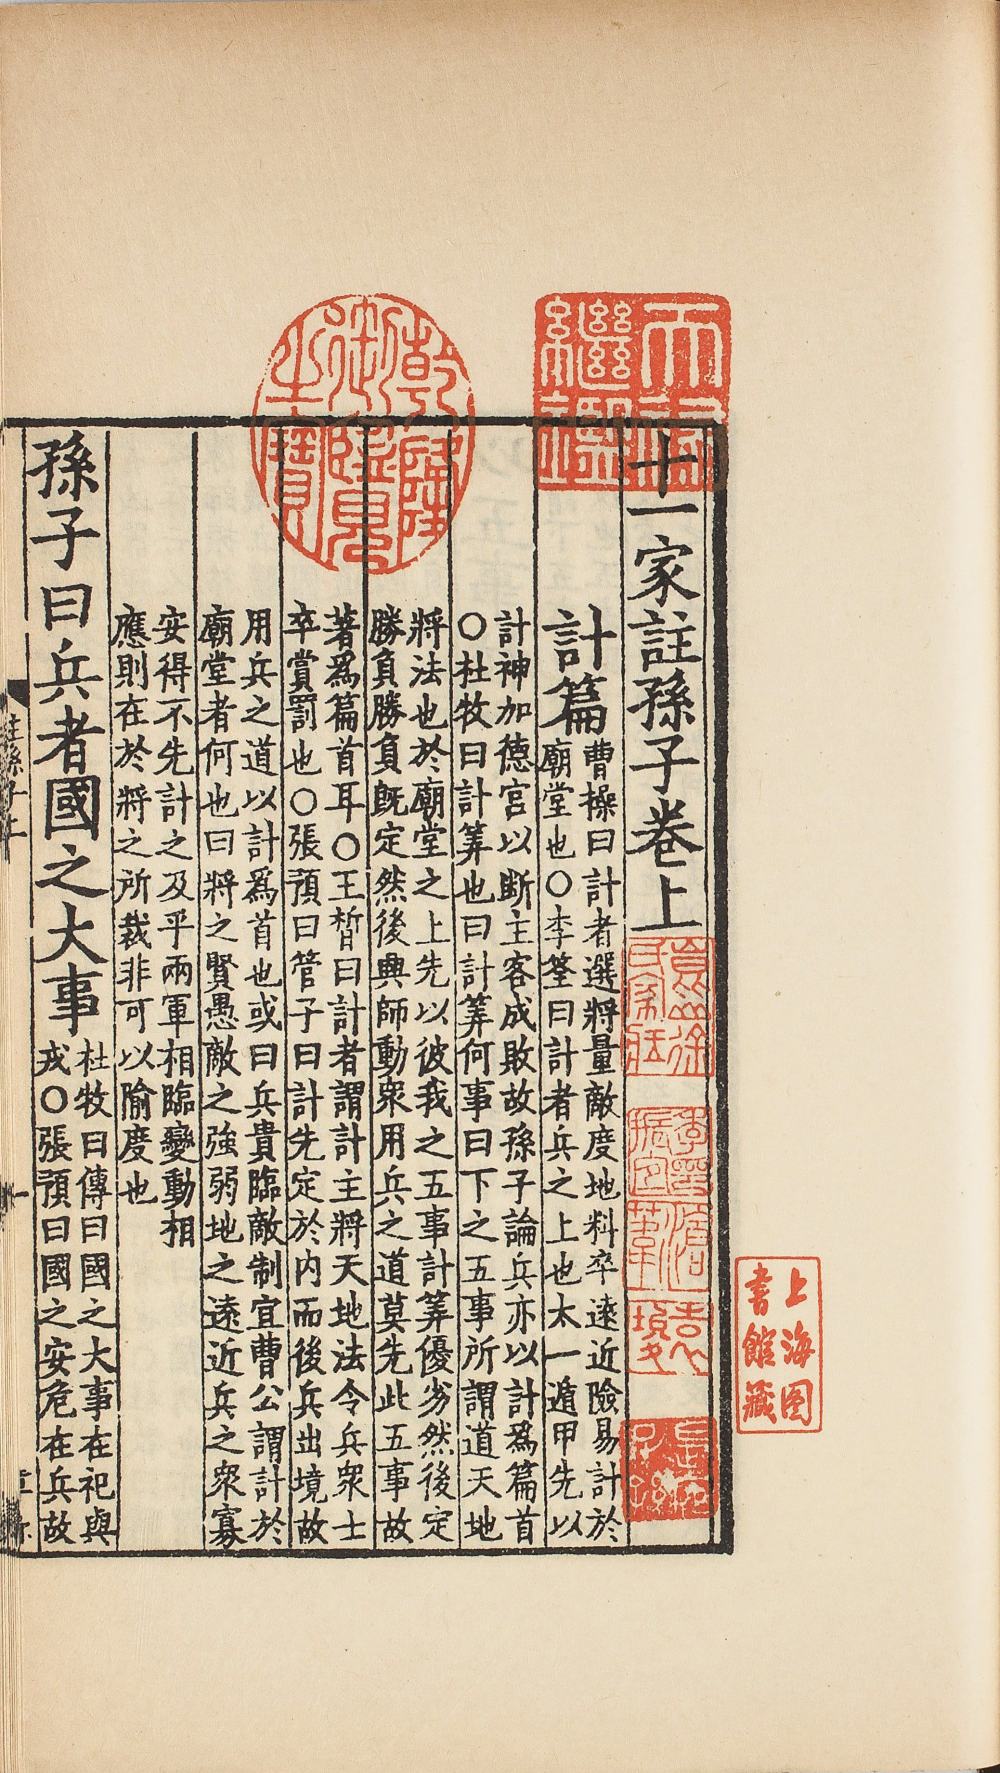 十一家註孫子卷上
計篇
曹操曰計者選將量敵度地料卒遠近險易計於
廟堂也○李筌曰計者兵之上也太一遁甲先以
計神加德宮以斷主客成敗故孫子論兵亦以計爲篇首
○杜牧曰計筭也曰計筭何事曰下之五事所謂道天地
將法也於廟堂之上先以彼我之五事計筭優劣然後定
勝負勝負旣定然後興師動衆用兵之道莫先此五事故
著爲篇首耳○王晳曰計者謂計主將天地法令兵衆士
卒賞罰也○張預曰管子曰計先定於内而後兵出境故
用兵之道以計爲首也或曰兵貴臨敵制宜曹公謂計於
廟堂者何也曰將之賢愚敵之強弱地之遠近兵之衆寡
安得不先計之及乎兩軍相臨變動相
應則在於將之所裁非可以隃度也
孫子曰兵者國之大事
杜牧曰傳曰國之大事在祀與
戎○張預曰國之安危在兵故
註孫子上
一
天祿繼鑑
乾隆御覽之寶
上海图書館藏